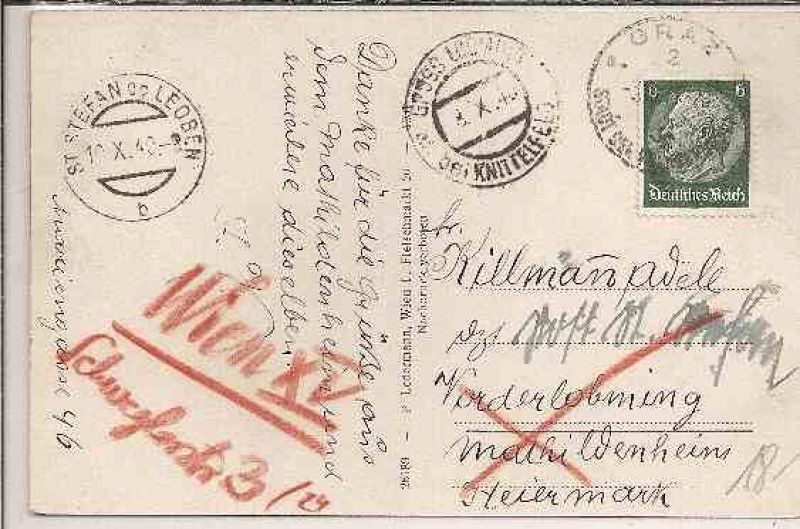 ST. STEFAN ob LEOBEN
10. X. 40.
a
GROSS LOBMING
bei KNITTELFELD
X. 40
GRAZ
2
6 6
Deutsches Reich
Danke für die Grüße aus
dem Mathildenheim und
erwidere dieselben.
gasse 46
Wien XV
3/
26189 – P. Ledermann, Wien I. Fleischmarkt 20 –
Nachdruck verboten
Killmann Adele
dzt
Vorderlobming
Mathildenheim
Steiermark
18